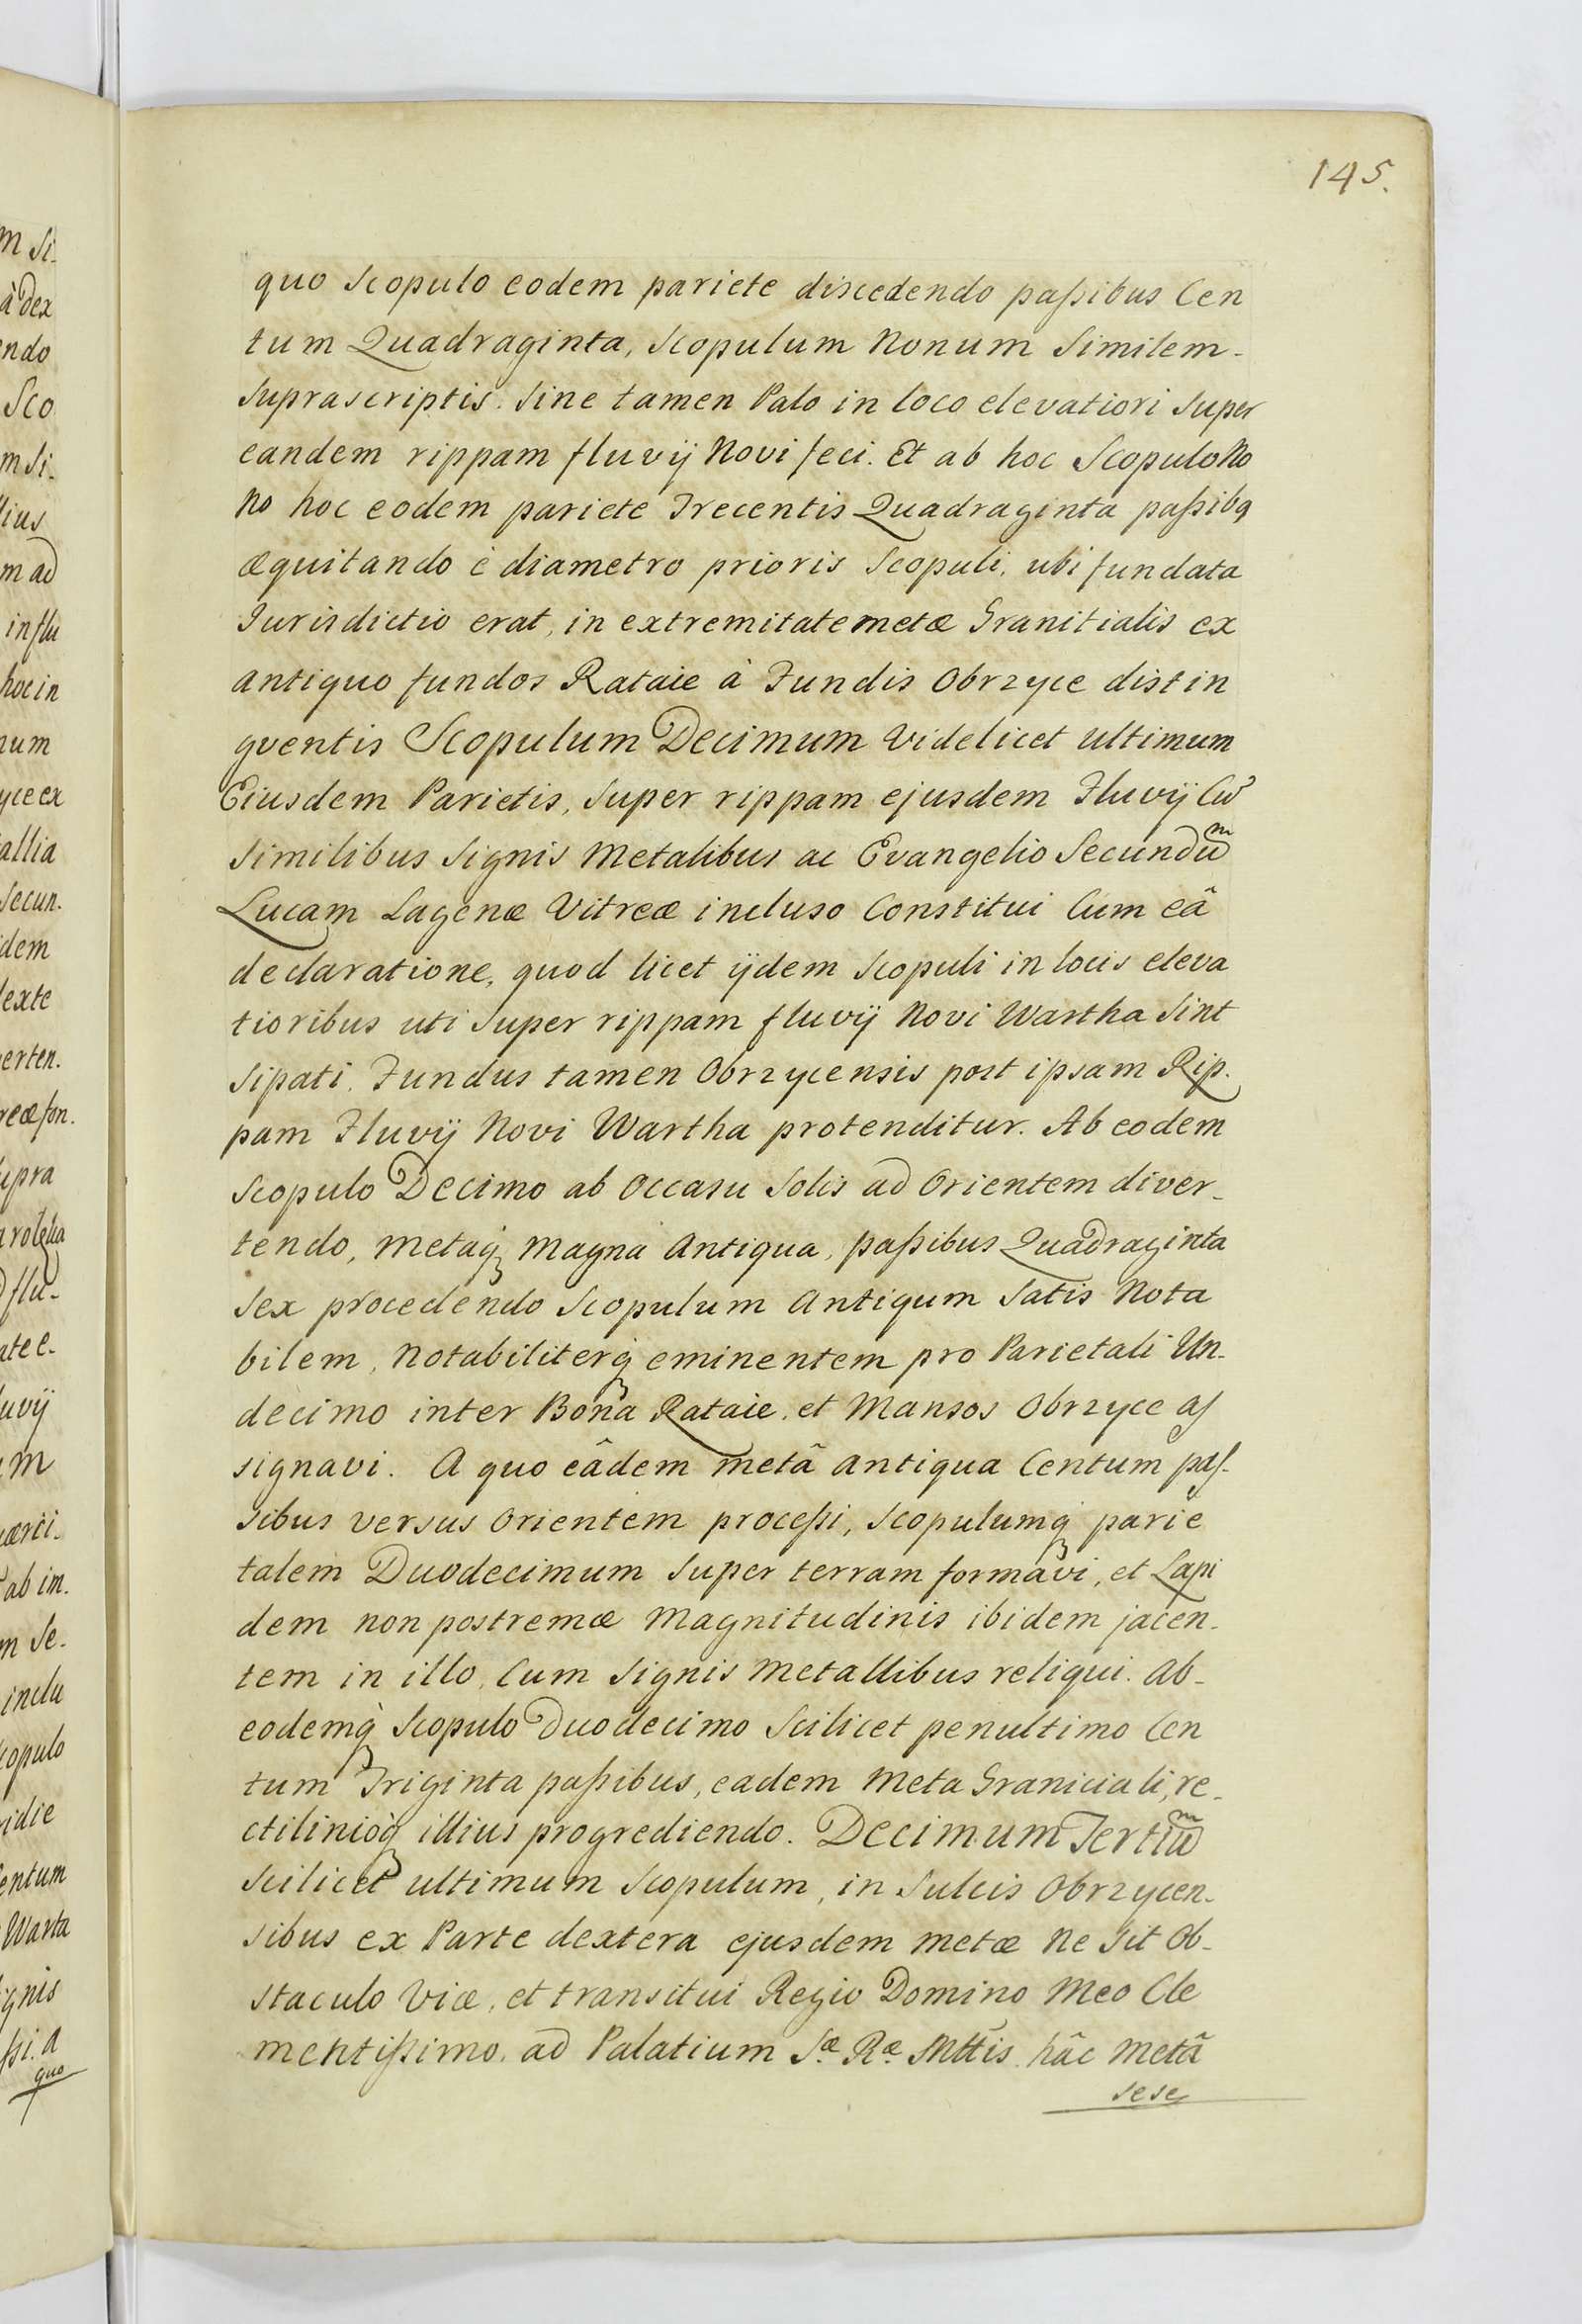 145.
quo Scopulo eodem pariete discedendo paſsibus Cen
tum Quadraginta, Scopulum Nonum Similem-
Suprascriptis. Sine tamen Palo in loco elevatiori Super
eandem rippam fluvij Novi feci. Et ab hoc Scopulo No
no hoc eodem pariete Trecentis Quadraginta paſsibq
æquitando è diametro prioris Scopuli, ubi fundata
Jurisdictio erat, in extremitate metæ Granitialis ex
antiquo fundos Rataie à Fundis Obrzyce distin
gventis Scopulum Decimum Videlicet ultimum
Eiusdem Parietis, Super rippam ejusdem Fluvij Cũ
Similibus Signis Metalibus ac Evangelio Secundũm
Lucam Lagenæ Vitreæ incluso Constitui Cum eâ
declaratione, quod licet ijdem Scopuli in locis eleva
tioribus uti Super rippam fluvij Novi Wartha Sint
Sipati. Fundus tamen Obrzycensis post ipsam Rip.
pam Fluvij Novi Wartha protenditur. Ab eodem
Scopulo Decimo ab Occasu Solis ad Orientem diver-
tendo, Metaq Magna Antiqua, paſsibus Quadraginta
Sex procedendo Scopulum Antiqum Satis Nota
bilem, Notabiliterq eminentem pro Parietali Un-
decimo inter Bona Rataie, et Mansos Obrzyce aſ
signavi. A quo eâdem metâ antiqua Centum paſ-
sibus versus Orientem proceſsi, Scopulumq parie
talem Duodecimum Super terram formavi, et Lapi
dem non postremæ Magnitudinis ibidem jacen-
tem in illo, Cum Signis Metallibus reliqui. Ab-
eodemq Scopulo Duodecimo Scilicet penultimo Cen
tum Triginta paſsibus, eadem Meta Graniciali, re-
ctilinioq illius progrediendo. Decimum Tertiũm
Scilicet ultimum Scopulum, in Sulcis Obrzycen-
sibus ex Parte dextera ejusdem metæ Ne Sit Ob-
staculo Viæ, et transitui Regio Domino Meo Cle
mentiſsimo. ad Palatium Sæ Ræ Mttis hâc Metâ
sese